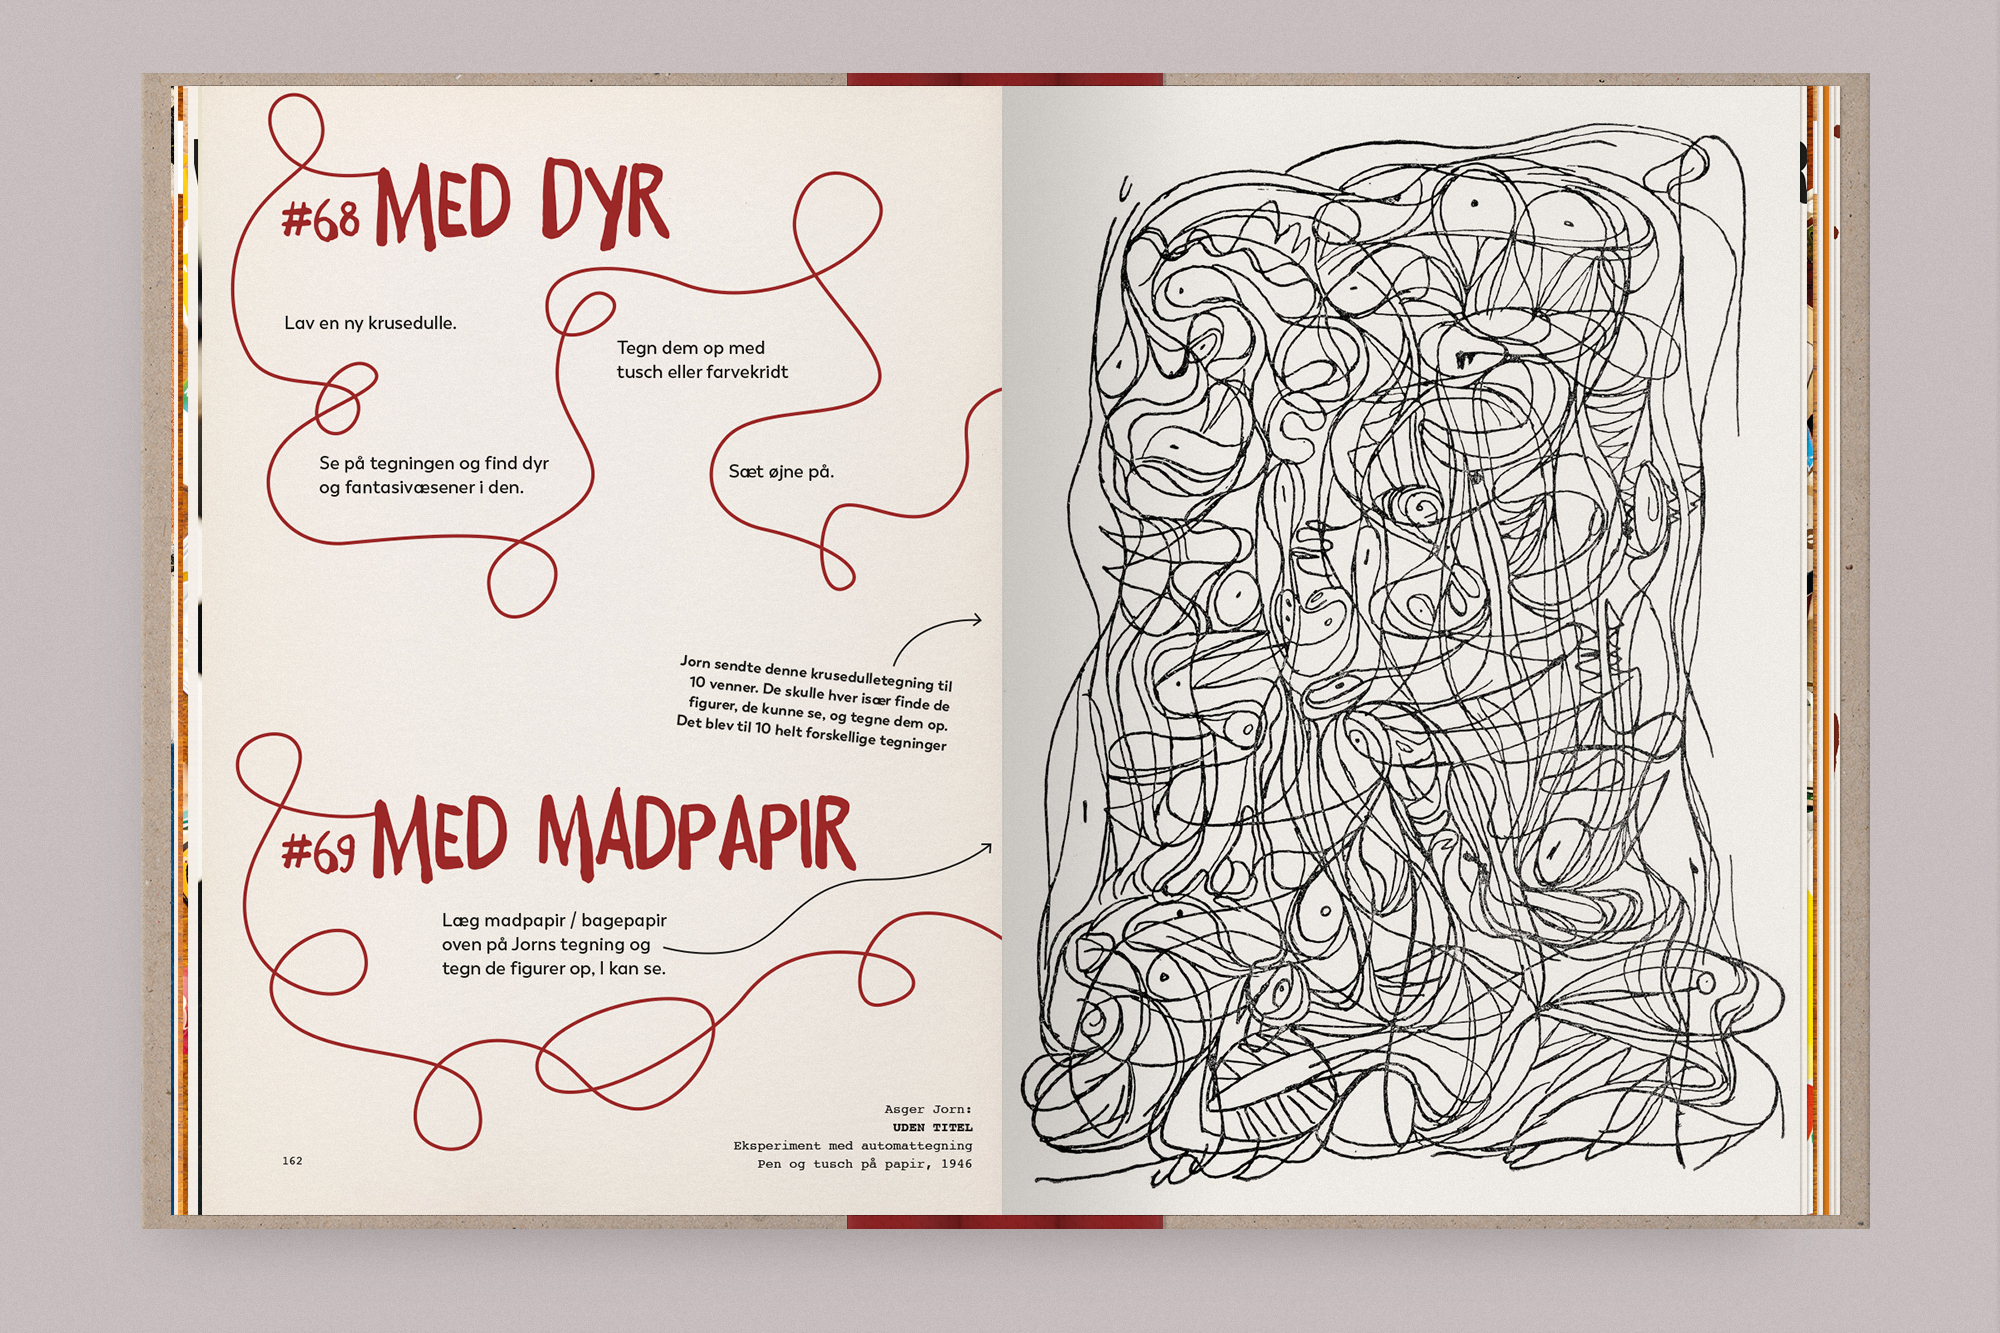 #68 MED DYR
Lav en ny krusedulle.
Se på tegningen og find dyr
og fantasivæsener i den.
Tegn dem op med
tusch eller farvekridt
Sæt øjne på.
Jorn sendte denne krusedulletegning til
10 venner. De skulle hver især finde de
figurer, de kunne se, og tegne dem op.
Det blev til 10 helt forskellige tegninger
#69 MED MADPAPIR
Læg madpapir / bagepapir
oven på Jorns tegning og
tegn de figurer op, I kan se.
Asger Jorn:
UDEN TITEL
Eksperiment med automattegning
Pen og tusch på papir, 1946
162